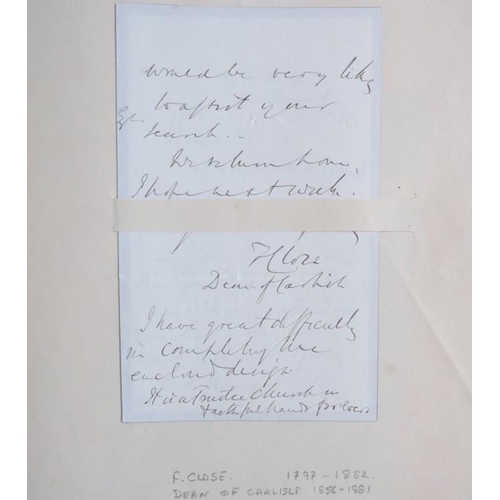 would be very likely
to assist your
search..
We return home,
I hope next week.
F Close
Dean of Carlisle
I have great difficulty
in completing the
enclosed design
It is a Trustee Church in
faithful hands
F. CLOSE. 1797-1882.
DEAN OF CARLISLE 1856-1881